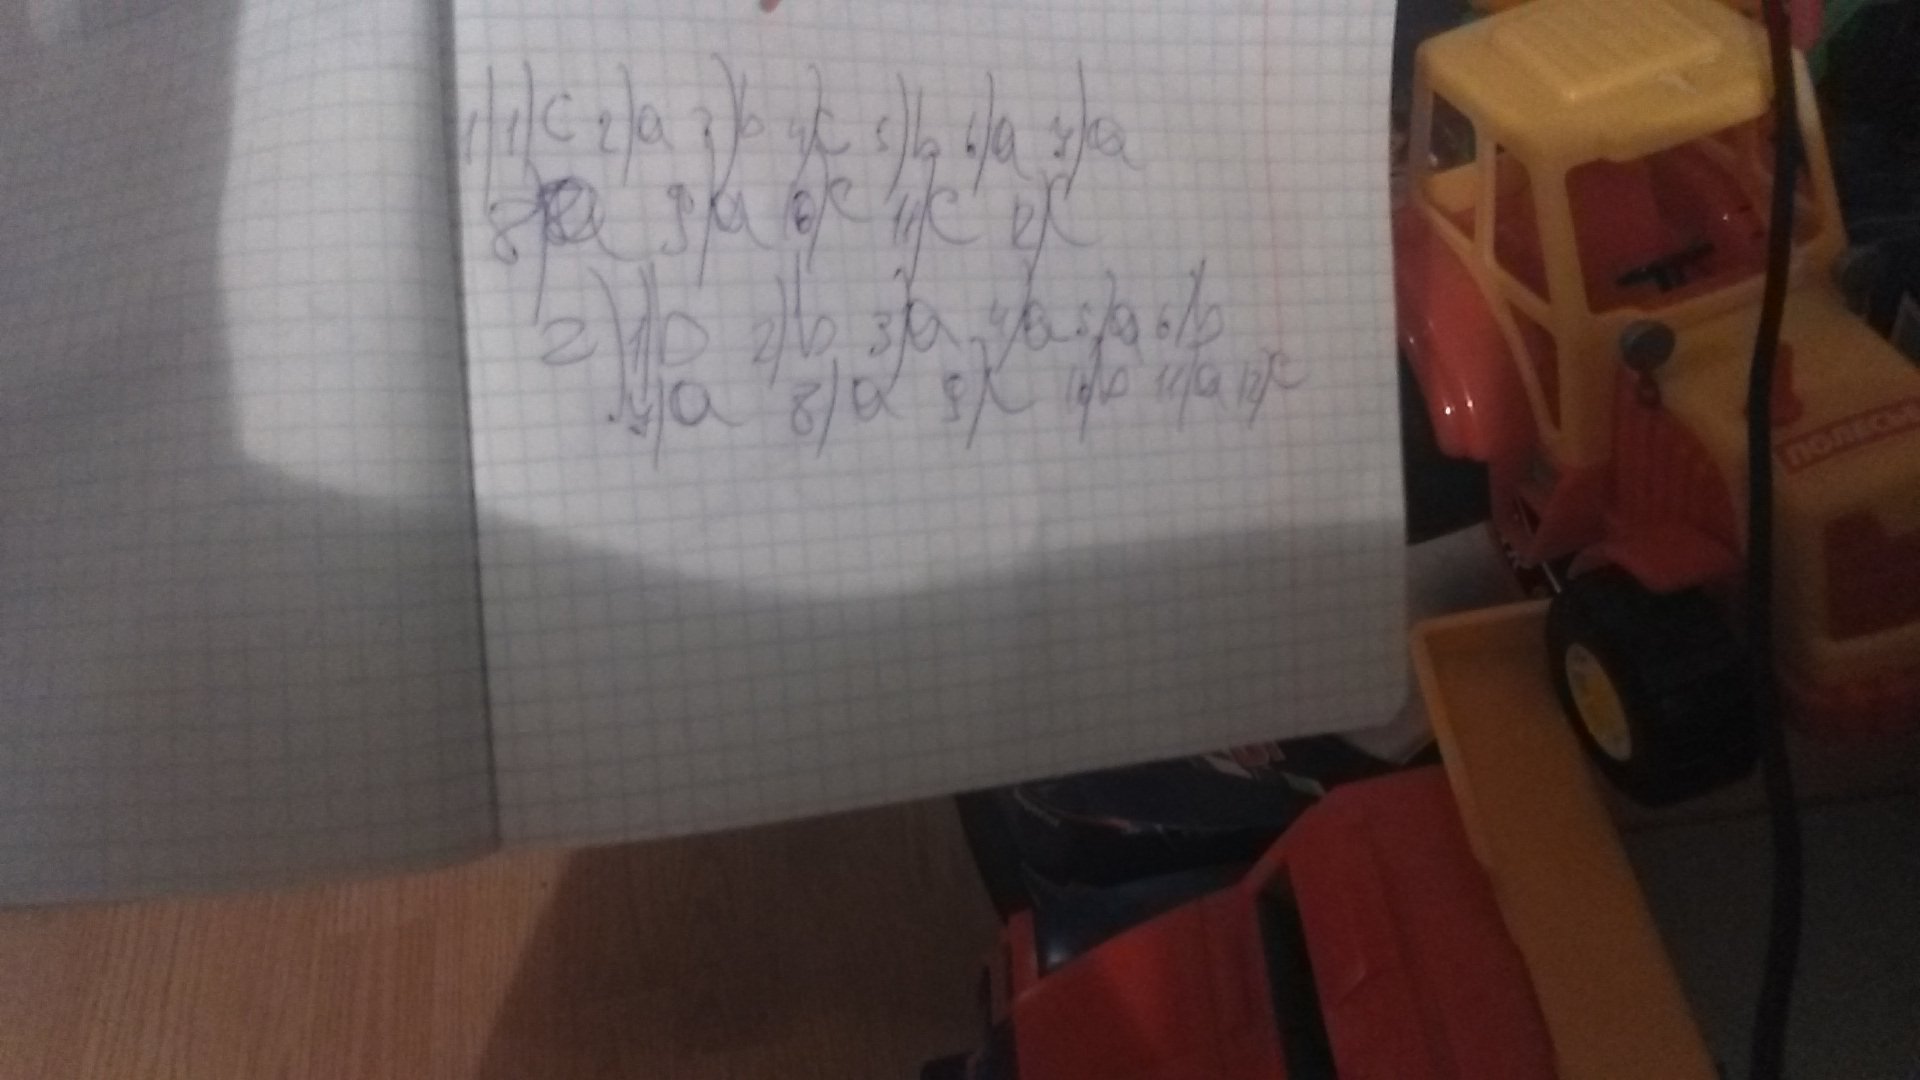 1) 1) c 2) a 3) b 4) c 5) b 6) a 7) a
8) a 9) a 10) c 11) c 12) c
2) 1) b 2) b 3) a 4) a 5) a 6) b
7) a 8) a 9) c 10) b 11) a 12) c
ПОЛЕСЬЕ